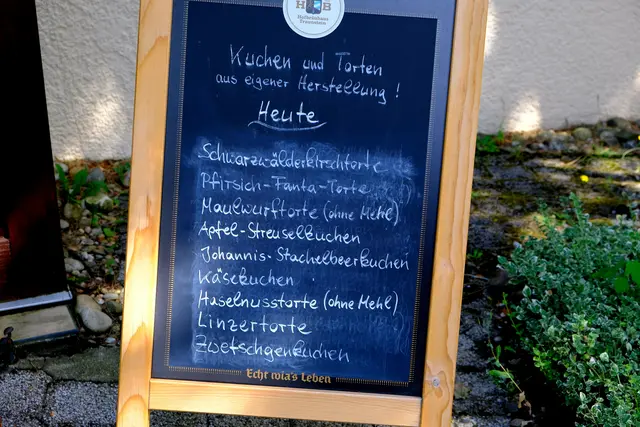 HB
Hofbräuhaus
Traunstein
Kuchen und Torten
aus eigener Herstellung!
Heute
Schwarzwälderkirschtorte
Pfirsich-Fanta-Torte
Maulwurftorte (ohne Mehl)
Apfel-Streuselkuchen
Johannis-Stachelbeerkuchen
Käsekuchen
Haselnusstorte (ohne Mehl)
Linzertorte
Zwetschgenkuchen
Echt wia's Leben